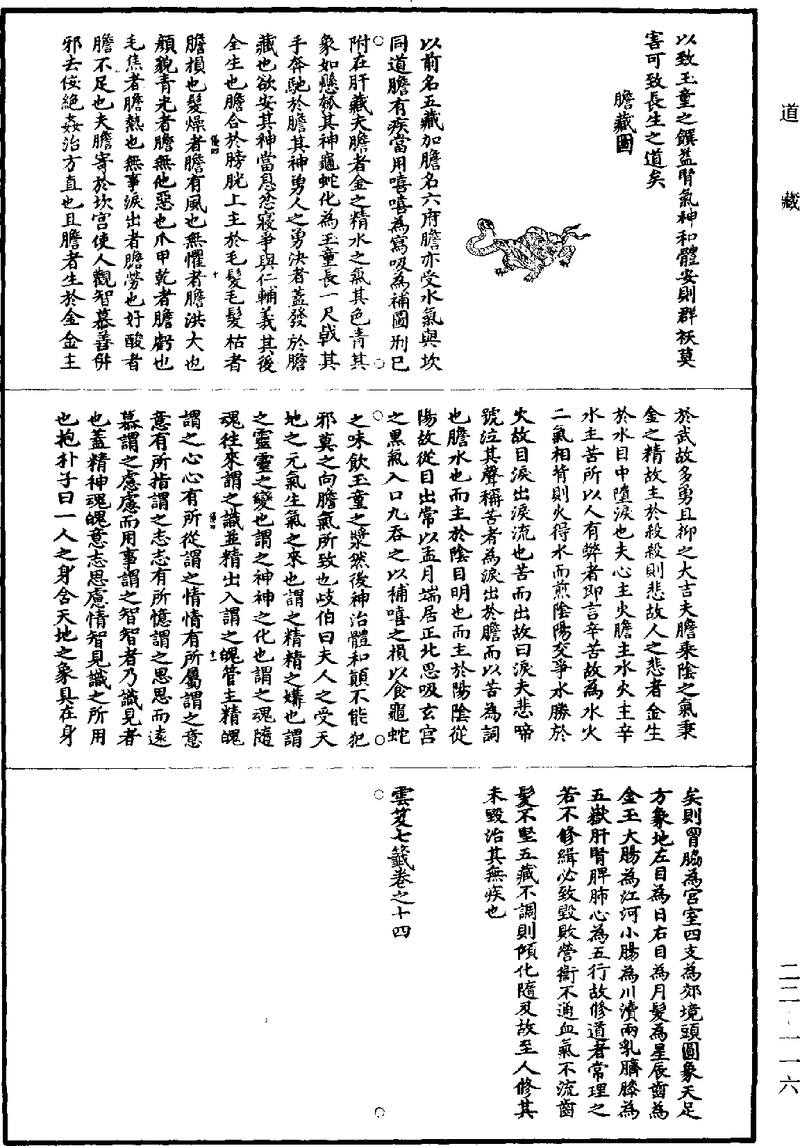 道藏
以致玉童之饌益腎氣神和體安則群祅莫
害可致長生之道矣
膽藏圖
以前名五藏加膽名六府膽亦受水氣與坎
同道膽有疾當用嘻嘻為寫吸為補圖形已
附在肝藏夫膽者金之精水之氣其色青其
象如懸瓠其神龜蛇化為玉童長一尺戟其
手奔馳於膽其神勇人之勇決者蓋發於膽
藏也欲安其神當息忿寢爭與仁輔義其後
全生也膽合於膀胱上主於毛髮毛髮枯者
膽損也髮燥者膽有風也無懼者膽洪大也
顏貌青光者膽無他惡也爪甲乾者膽虧也
毛焦者膽熱也無事淚出者膽勞也好酸者
膽不足也夫膽寄於坎宮使人觀智慕善併
邪去佞絕姦治方直也且膽者生於金金主
於武故多勇且抑之大吉夫膽乘陰之氣秉
金之精故主於殺殺則悲故人之悲者金生
於水目中墮淚也夫心主火膽主水火主辛
水主苦所以人有弊者即言辛苦故為水火
二氣相背則火得水而煎陰陽交爭水勝於
火故目淚出淚流也苦而出故曰淚夫悲啼
號泣其聲稱苦者為淚出於膽而以苦為詞
也膽水也而主於陰目明也而主於陽陰從
陽故從目出常以孟月端居正北思吸玄宮
之黑氣入口九吞之以補嘻之損以食龜蛇
之味飲玉童之漿然後神治體和顛不能犯
邪莫之向膽氣所致也歧伯曰夫人之受天
地之元氣生氣之來也謂之精精之媾也謂
之靈靈之變也謂之神神之化也謂之魂隨
魂往來謂之識並精出入謂之魄管主精魄
謂之心心有所從謂之情情有所屬謂之意
意有所指謂之志志有所憶謂之思思而遠
慕謂之慮慮而用事謂之智智者乃識見者
也蓋精神魂魄意志思慮情智見識之所用
也抱朴子曰一人之身含天地之象具在身
矣則胷脇為宮室四支為郊境頭圓象天足
方象地左目為日右目為月髮為星辰齒為
金玉大腸為江河小腸為川瀆兩乳臍膝為
五嶽肝腎脾肺心為五行故修道者常理之
若不修緝必致毀敗營衛不通血氣不流齒
髮不堅五藏不調則傾化隨及故至人修其
未毀治其無疾也
雲芨七籤卷之十四
二二-一一六